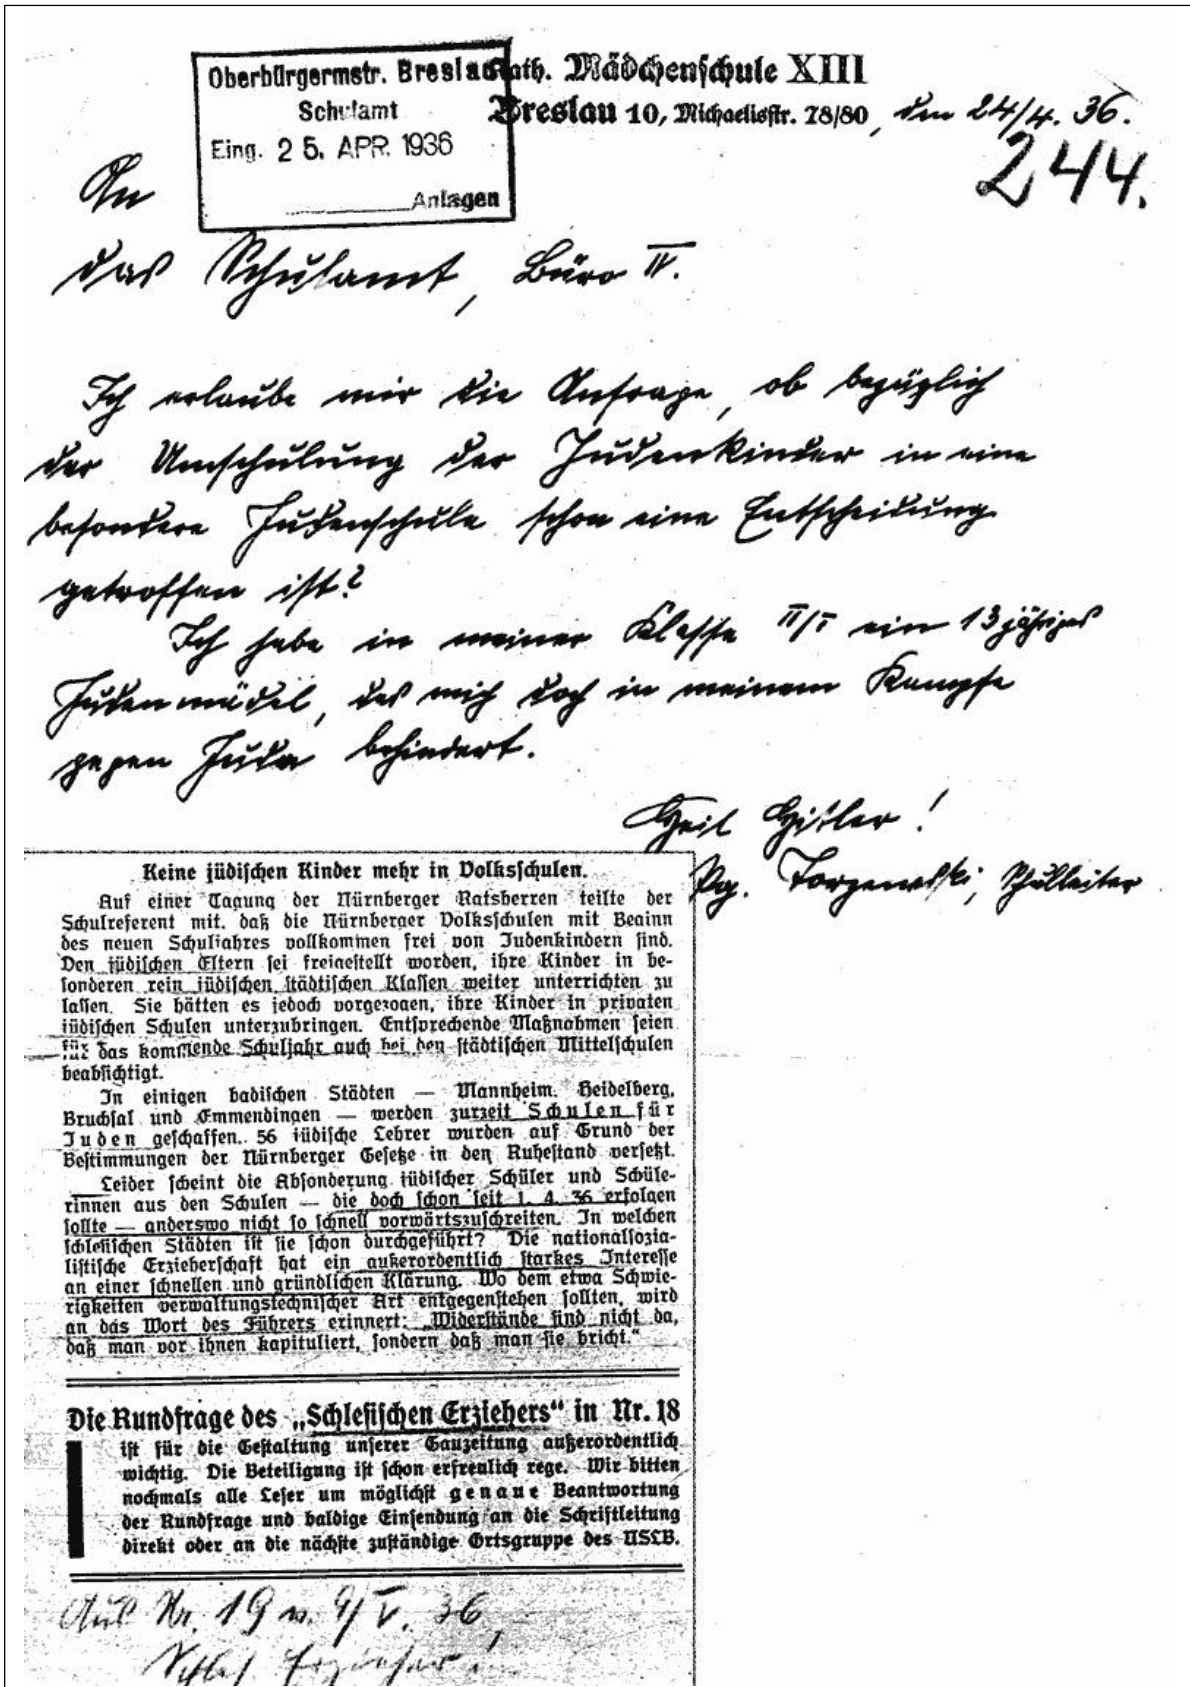 Oberbürgermstr. Breslau
Schulamt
Eing. 25. APR. 1936
Anlagen
Kath. Mädchenschule XIII
Breslau 10, Michaelisstr. 78/80, den 24/4. 36.
244.
An
das Schulamt, Büro IV.
Ich erlaube mir die Anfrage, ob bezüglich
der Umschulung der Judenkinder in eine
besondere Judenschule schon eine Entscheidung
getroffen ist?
Ich habe in meiner Klasse II/I ein 13jähriges
Judenmädel, das mich doch in meinem Kampfe
gegen Juda behindert.
Heil Hitler!
Pg. Schulleiter
Keine jüdischen Kinder mehr in Volksschulen.
Auf einer Tagung der Nürnberger Ratsherren teilte der
Schulreferent mit, daß die Nürnberger Volksschulen mit Beginn
des neuen Schuljahres vollkommen frei von Judenkindern sind.
Den jüdischen Eltern sei freigestellt worden, ihre Kinder in be-
sonderen rein jüdischen städtischen Klassen weiter unterrichten zu
lassen. Sie hätten es jedoch vorgezogen, ihre Kinder in privaten
jüdischen Schulen unterzubringen. Entsprechende Maßnahmen seien
für das kommende Schuljahr auch bei den städtischen Mittelschulen
beabsichtigt.
In einigen badischen Städten — Mannheim, Heidelberg,
Bruchsal und Emmendingen — werden zurzeit Schulen für
Juden geschaffen. 56 jüdische Lehrer wurden auf Grund der
Bestimmungen der Nürnberger Gesetze in den Ruhestand versetzt.
Leider scheint die Absonderung jüdischer Schüler und Schüle-
rinnen aus den Schulen — die doch schon seit 1. 4. 36 erfolgen
sollte — anderswo nicht so schnell vorwärtszuschreiten. In welchen
schlesischen Städten ist sie schon durchgeführt? Die nationalsozia-
listische Erzieherschaft hat ein außerordentlich starkes Interesse
an einer schnellen und gründlichen Klärung. Wo dem etwa Schwie-
rigkeiten verwaltungstechnischer Art entgegenstehen sollten, wird
an das Wort des Führers erinnert: „Widerstände sind nicht da,
daß man vor ihnen kapituliert, sondern daß man sie bricht.“
Die Rundfrage des „Schlesischen Erziehers“ in Nr. 18
ist für die Gestaltung unserer Gauzeitung außerordentlich
wichtig. Die Beteiligung ist schon erfreulich rege. Wir bitten
nochmals alle Leser um möglichst genaue Beantwortung
der Rundfrage und baldige Einsendung an die Schriftleitung
direkt oder an die nächste zuständige Ortsgruppe des NSLB.
Aus Nr. 19 v. 9/V. 36,
Schles. Erzieher